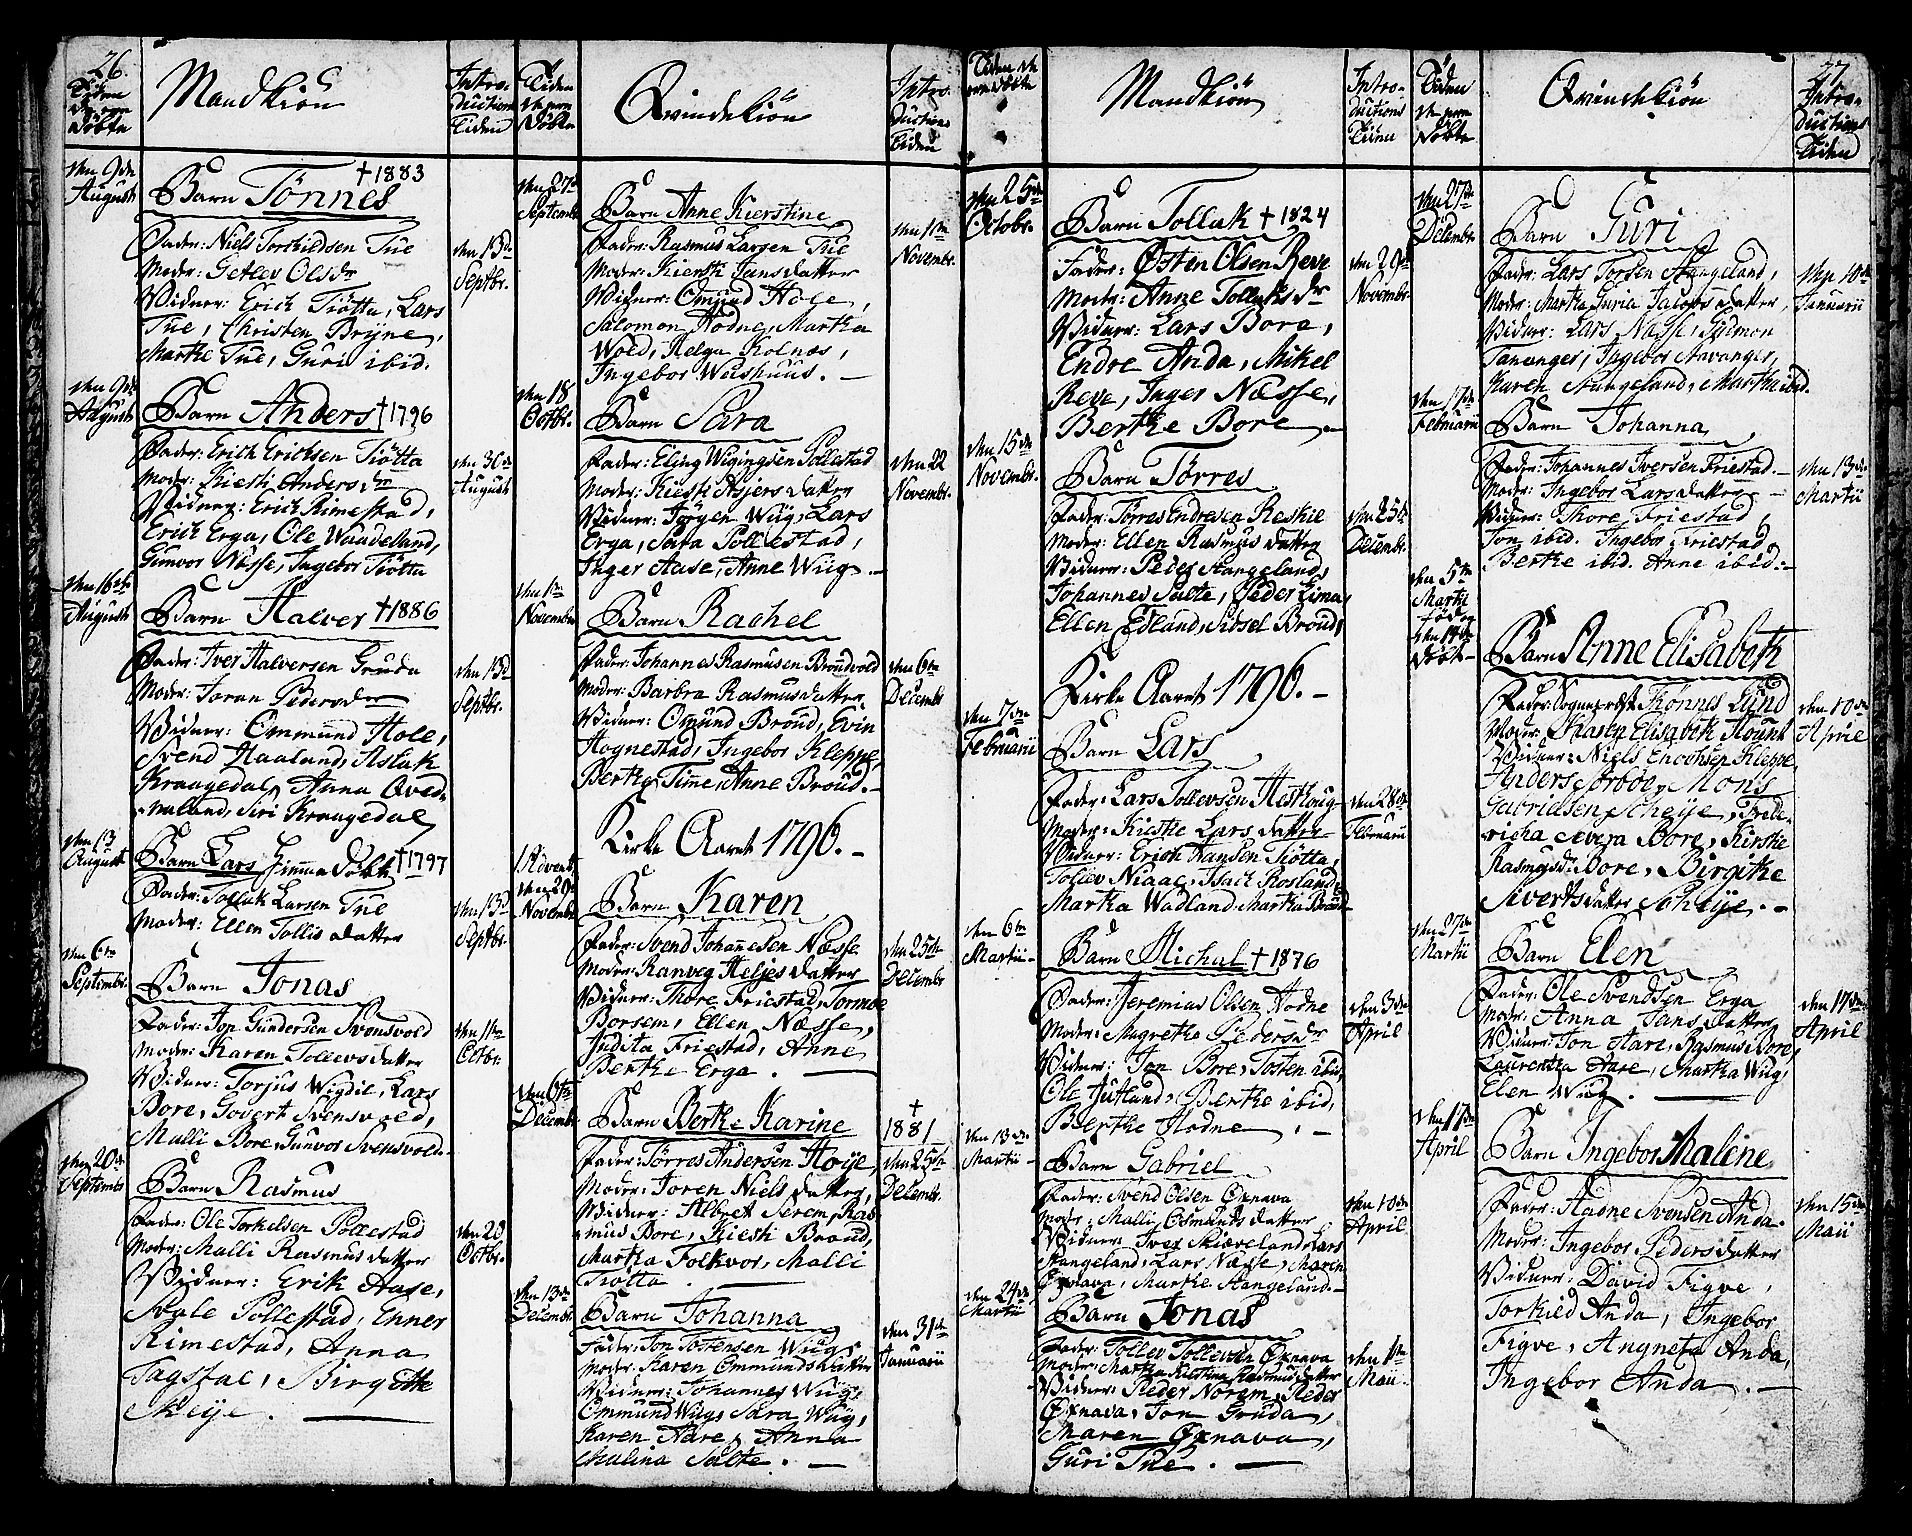 26.
Tiden
da som
döbte
Mandkiön
Intro-
ductions
Tiden
den 9de
August
Barn Tönnes
† 1883
Fader: Niels Torkildsen Tue
Moder: Getlev Olsdr
Vidner: Erich Tiötta, Lars
Tue, Christen Bryne,
Marthe Tue, Guri ibid.
den 13de
Septbr.
den 9de
August
Barn Anders † 1796
Fader: Erich Erichsen Tiötta
Moder: Kiesti Andersdr
Vidner: Erich Rimestad,
Erich Erga, Ole Waadeland,
Gunvor Næsse, Ingebor Tiötta
den 30te
August
den 16de
August
Barn Halver † 1886
Fader: Iver Halversen Gruda
Moder: Joran Pedersdr
Vidner: Ommund Hole,
Svend Haaland, Aslak
Kraagedal, Anna Qved-
naland, Siri Kraagedal
den 13de
Septbr.
den 13
August
Barn Lars Hiemme Döbt † 1797
Fader: Tolluk Larsen Tue
Moder: Ellen Tollis datter
den 13de
Septbr.
den 6te
Septembr.
Barn Jonas
Fader: Jon Gundersen Svensvold
Moder: Karen Tollevs datter
Vidner: Torjus Wigdil, Lars
Bore, Govert Svensvold,
Malli Bore, Gunvor Svensvold.
den 11te
Octbr.
den 20de
Septembr
Barn Rasmus
Fader: Ole Torkelsen Pollestad
Moder: Malli Rasmus datter
Vidner: Erik Aase,
Svale Pollestad, Enner
Rimestad, Anna
Tagstal, Birgitte
Skeije.
den 20
Octbr.
Tiden
de som
döbte
Qvindekiön
Intro-
ductions
Tiden
den 27de
Septembr
Barn Anne Kierstine
Fader: Rasmus Larsen Tue
Moder: Kiersti Jansdatter
Vidner: Omund Hole,
Salomon Hodne, Martha
Wold, Helga Kolnæs,
Ingebor Washuus.
den 1ste
Novembr.
den 18
Octbr.
Barn Sara
Fader: Eljng Wigingsen Pollestad
Moder: Kiesti Asjers datter
Vidner: Jörgen Wiig, Lars
Erga, Sara Pollestad,
Inger Aase, Anne Wiig.
den 22
Novembr.
den 1ste
Novembr
Barn Rachel
Fader: Johannes Rasmusen Broudvold
Moder: Barbra Rasmusdatter
Vidner: Omund Broud, Evin
Hognestad, Ingebor Kleppe,
Berthe Timme, Anne Broud.
den 6te
Decembr
Kirke Aaret 1796.
1 Advent
den 29de
Novembr
Barn Karen
Fader: Svend Johannesen Næsse
Moder: Ranveg Heljes datter
Vidner: Thore Friestad, Tormoe
Borsem, Ellen Næsse,
Judita Friestad, Anne
Berthe Erga.
den 25de
Decembr
den 6te
Decembr
Barn Berthe Karine
†
1881
Fader: Törres Andersen Hoije,
Moder: Joren Niels datter,
Vidner: Albret Serem, Ras
mus Bore, Kiesti Braud,
Martha Folkvor, Malli
Tiötta.
den 25de
Decembr.
den 13de
Decembr.
Barn Johanna
Fader: Jon Tostensen Wiig,
Moder: Karen Ommundsdatter
Vidner: Johannes Wiig,
Ommund Wiig, Sara Wiig,
Karen Aare, Anna
Malina Salte.
den 31te
Januarii
Tiden de
som döbte
Mandkiön
Intro-
ductions
Tiden
den 25de
Octobr.
Barn Tolluk † 1824
Fader: Østen Olsen Reve
Moder: Anne Tolluksdr
Vidner: Lars Bora,
Endre Anda, Mikel
Reve, Inger Næsse,
Berthe Bore.
den 29de
Novembr.
den 15de
Novembr.
Barn Törres
Fader: Törres Endresen Reskie
Moder: Ellen Rasmus datter
Vidner: Peder Stangeland,
Johannes Salte, Peder Lima,
Ellen Edland, Sidsel Broud,
den 25de
Decembr.
Kirke Aaret 1796.
den 7de
Februarii
Barn Lars
Fader: Lars Tollevsen Hethoug
Moder: Kiestie Lars datter
Vidner: Erich Hansen Tiötta,
Tollev Niaae, Isach Rosland,
Martha Wadland, Martha Braud
den 28de
Februarii
den 6te
Martii
Barn Michal † 1876
Fader: Jeremias Olsen Hodne
Moder: Magrethe Pedersdr
Vidner: Jon Bore, Tosten ibid,
Ole Jutland, Berthe ibid,
Berthe Hodne.
den 3de
April
den 13de
Martii
Barn Gabriel
Fader: Svend Olsen Øxnava
Moder: Malli Osmunds datter
Vidner: Iver Skiæveland, Lars
Stangeland, Lars Næsse, Maren
Øxnava, Marthe Stangeland.
den 10de
April
den 24de
Martii
Barn Jonas
Fader: Tollev Tollevsen Øxnava
Moder: Martha Kiestina Rasmus datter
Vidner: Peder Norem, Peder
Øxnava, Jon Gruda,
Maren Øxnava,
Guri Tue.
den 1ste
Maii
Tiden
de som
döbte
Qvindekiön
27.
Intro-
ductions
Tiden
den 27de
Decembr.
Barn Guri
Fader: Lars Torsen Stangeland,
Moder: Martha Guria Jacobsdatter,
Vidner: Lars Næsse, Gudmon
Tananger, Ingebor Stavanger,
Karen Stangeland, Martha ibid.
den 10de
Januarii
den 17de
Februarii
Barn Johanna
Fader: Johannes Iversen Friestad.
Moder: Ingebor Lars datter
Vidner: Thore Friestad,
Jon ibid. Ingebor Friestad,
Berthe ibid. Anne ibid.
den 13de
Martii
den 5te
Martii
föd og
den 14de
döbt
Barn Anne Elisabeth
Fader: Sogneprest Thönnes Lund
Moder: Maren Elisabeth Hount
Vidner: Niels Enochsen Kleppe,
Anders Orboe, Mons
Gabrielsen Scheije, Frede-
richa Severa Bore, Kirstie
Rasmusdr Bore, Birgithe
Siverts datter Scheije.
den 10de
April
den 27de
Martii
Barn Elen
Fader: Ole Svendsen Erga
Moder: Anna Jans datter
Vidner: Jon Hare, Rasmus Bore,
Laurentta Aase, Martha Wiig,
Elen Wiig.
den 17de
April
den 17de
April
Barn Ingebor Maline
Fader: Hadne Svensen Anda.
Moder: Ingebor Peders datter
Vidner: David Figve,
Torkild Anda, Ingebor
Figve, Angneta Anda,
Ingebor Anda.
den 15de
Maii